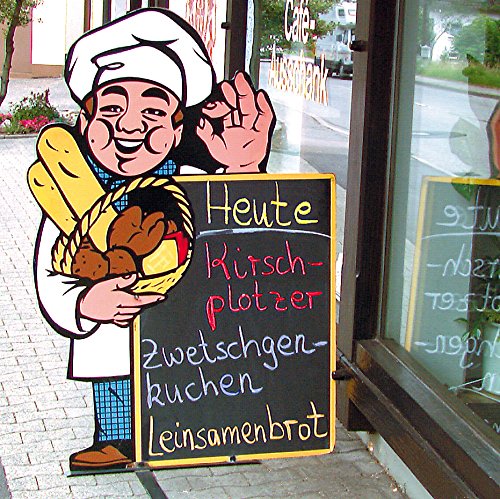 Café-
Ausschank
Heute
Kirsch-
plotzer
Zwetschgen-
kuchen
Leinsamenbrot